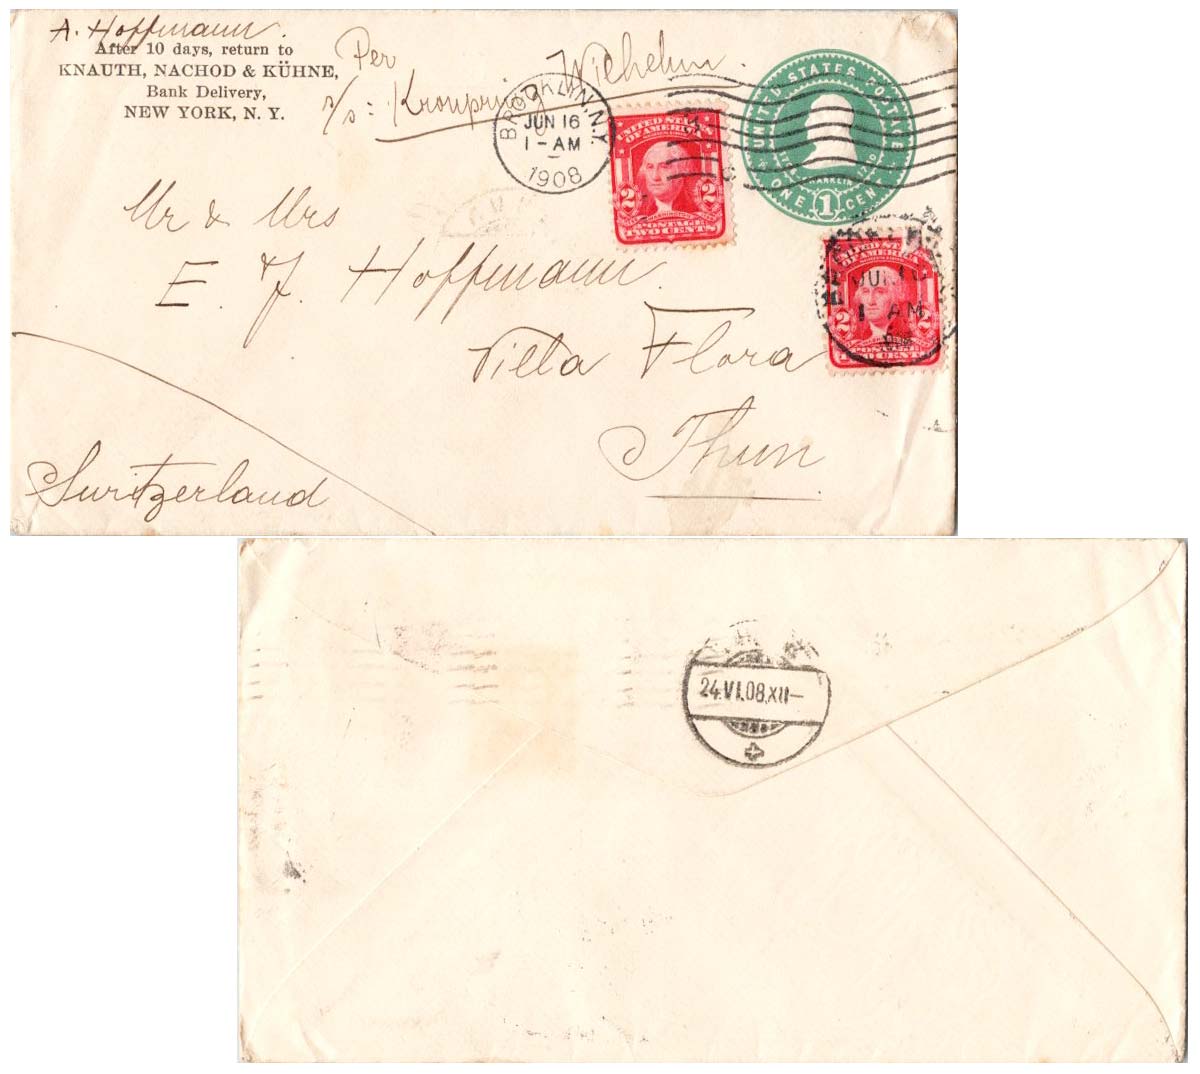 A. Hoffmann.
After 10 days, return to
KNAUTH, NACHOD & KÜHNE,
Bank Delivery,
NEW YORK, N. Y.
Per
s/s: Kronprinz Wilhelm.
BROOKLYN, N.Y.
JUN 16
1-AM
1908
UNITED STATES
OF AMERICA
2 2
WASHINGTON
POSTAGE
TWO CENTS
UNITED STATES POSTAGE
FRANKLIN
ONE 1 CENT
Mr & Mrs
E. J. Hoffmann.
Villa Flora
Thun.
Switzerland
UNITED ST
JUN 16
1 AM
2 2
POSTAGE
TWO CENTS
24.VI.08.XII–